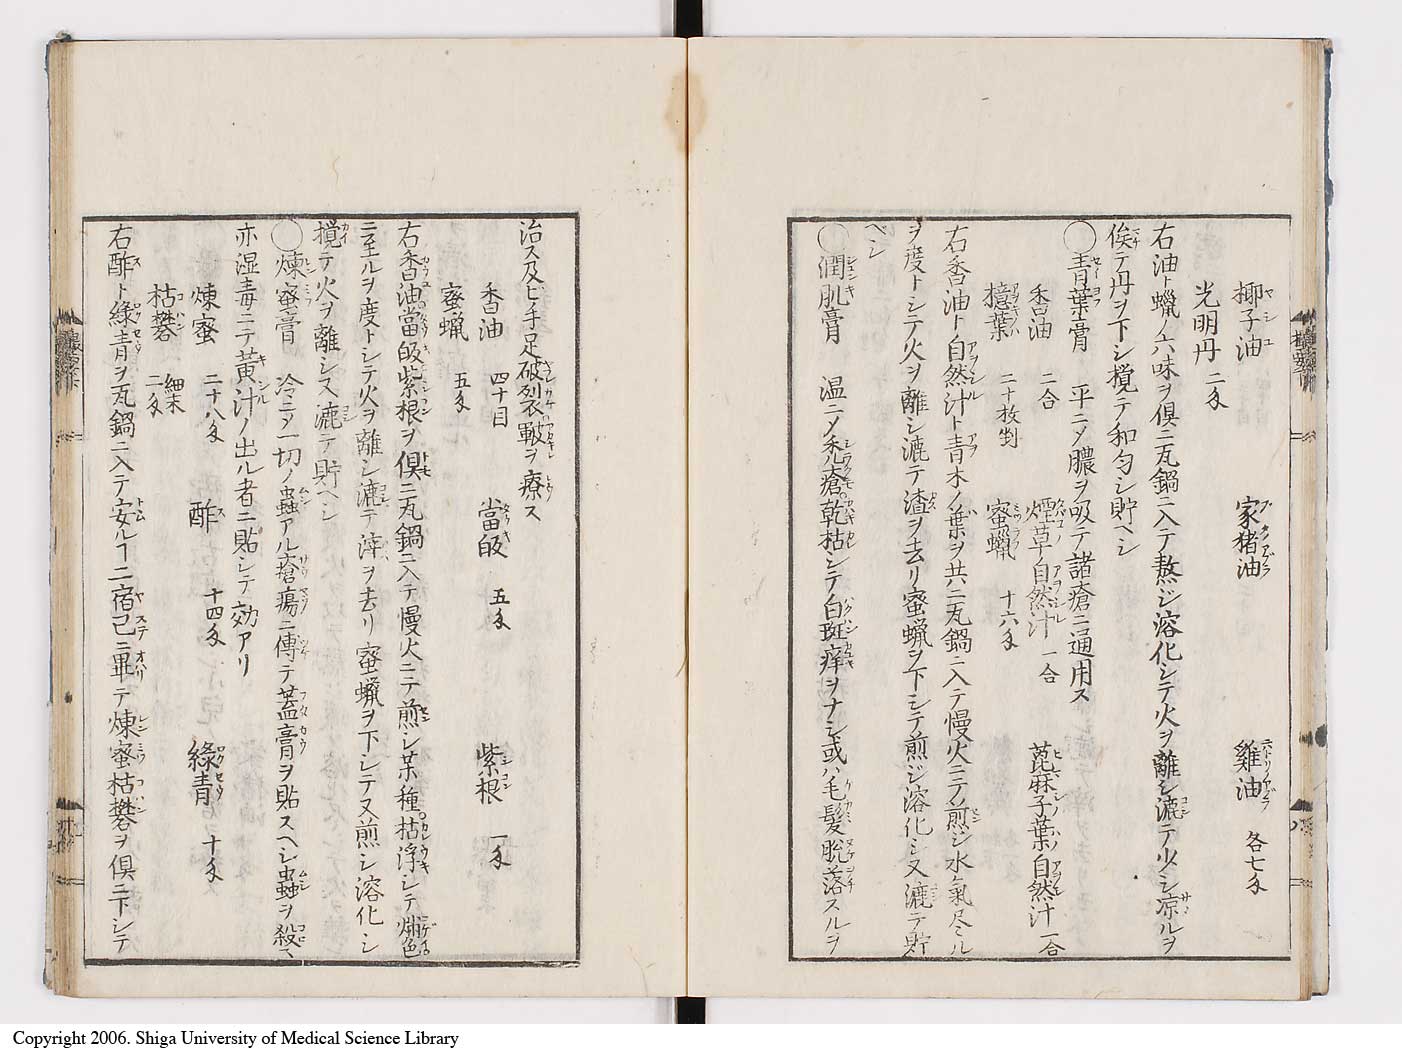 椰子油 家猪油 雞油 各七匁
光明丹 二匁
右油ト蝋ノ六味ヲ倶ニ瓦鍋ニ入テ熬ジ溶化シテ火ヲ離シ漉テ少シ凉ルヲ
俟テ丹ヲ下シ攪テ和匀シ貯ヘシ
◯青葉膏 平ニメ膿ヲ吸テ諸瘡ニ通用ス
香油 二合 煙草自然汁 一合 蓖麻子葉ノ自然汁 一合
檍葉 二十枚剉 蜜蠟 十六匁
右香油ト自然汁ト青木ノ葉ヲ共ニ瓦鍋ニ入テ慢火ニテ煎シ水氣尽ル
ヲ度トシテ火ヲ離シ漉テ渣ヲ去リ蜜蝋ヲ下シテ煎ジ溶化シ又漉テ貯
ベシ
◯潤肌膏 温ニメ禿瘡乾枯シテ白斑痒ヲナシ或ハ毛髪脱落スルヲ
治ス及ビ手足破裂皸ヲ療ス
香油 四十目 當皈 五匁 紫根 一匁
蜜蝋 五匁
右香油當皈紫根ヲ倶ニ瓦鍋ニ入テ慢火ニテ煎シ某種枯浮シテ焦色
ニ至ルヲ度トシテ火ヲ離シ漉テ滓ヲ去リ蜜蝋ヲ下シテ又煎シ溶化シ
攪テ火ヲ離シ又漉テ貯ヘシ
◯煉蜜膏 冷ニメ一切ノ蟲アル瘡瘍ニ傳テ蓋膏ヲ貼スヘシ蟲ヲ殺ス
亦湿毒ニテ黄汁ノ出ル者ニ貼シテ効アリ
煉蜜 二十八匁 酢 十四匁 綠青 十匁
枯礬 細末 二匁
右酢ト綠青ヲ瓦鍋ニ入テ安ルヿ二宿已ニ畢テ煉蜜枯礬ヲ倶ニ下シテ
Copyright 2006. Shiga University of Medical Science Library